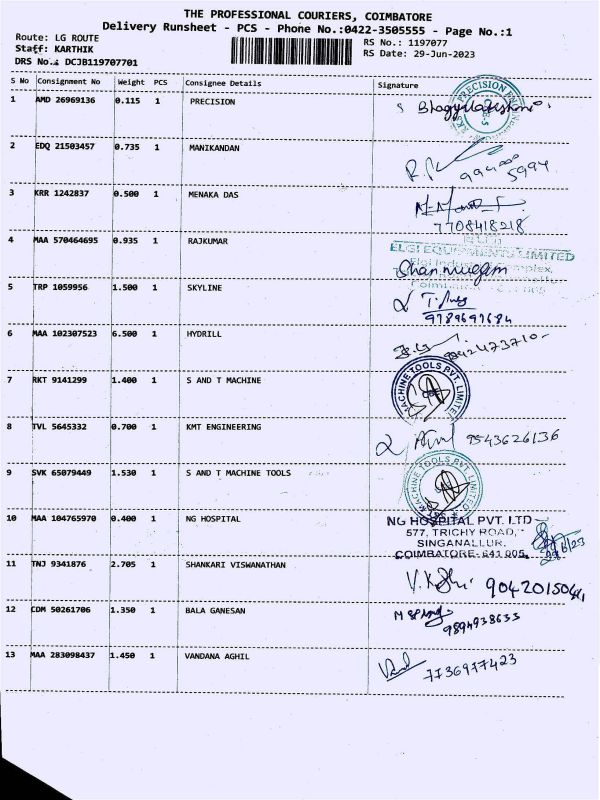 THE PROFESSIONAL COURIERS, COIMBATORE
Delivery Runsheet - PCS - Phone No.:0422-3505555 - Page No.:1
Route: LG ROUTE RS No.: 1197077
Staff: KARTHIK RS Date: 29-Jun-2023
DRS No.: DCJB119707701
S No Consignment No Weight PCS Consignee Details Signature
1 AMD 26969136 0.115 1 PRECISION
2 EDQ 21503457 0.735 1 MANIKANDAN
3 KRR 1242837 0.500 1 MENAKA DAS
7708418218
4 MAA 570464695 0.935 1 RAJKUMAR
ELGI EQUIPMENTS LIMITED
Shanmugam
5 TRP 1059956 1.500 1 SKYLINE
9789697684
6 MAA 102307523 6.500 1 HYDRILL
7 RKT 9141299 1.400 1 S AND T MACHINE
MACHINE TOOLS PVT. LIMITED
8 TVL 5645332 0.700 1 KMT ENGINEERING
9543626136
9 SVK 65079449 1.530 1 S AND T MACHINE TOOLS
MACHINE TOOLS PVT. LIMITED
10 MAA 104765970 0.400 1 NG HOSPITAL
NG HOSPITAL PVT. LTD
577, TRICHY ROAD,
SINGANALLUR,
COIMBATORE-641 005.
11 TNJ 9341876 2.705 1 SHANKARI VISWANATHAN
12 CDM 50261706 1.350 1 BALA GANESAN
9894938633
13 MAA 283098437 1.450 1 VANDANA AGHIL
7736977423